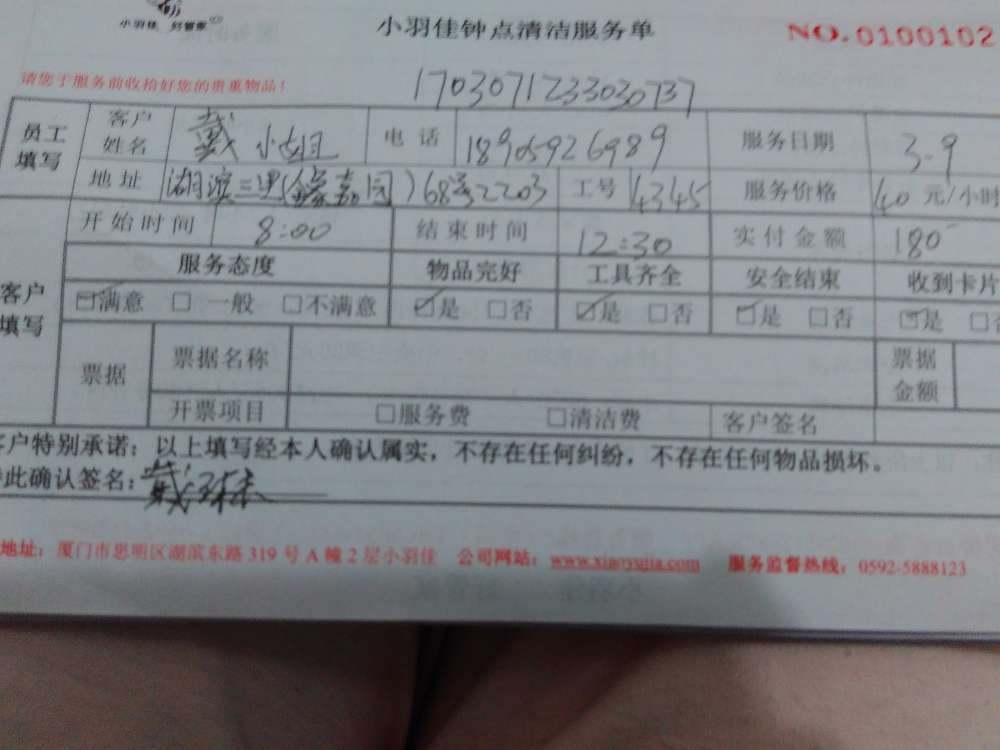 小羽佳 好管家
小羽佳钟点清洁服务单 NO.0100102
请您于服务前收拾好您的贵重物品!
1703071233030737
员工填写 客户姓名 戴小姐 电话 18905926989 服务日期 3-9
地址 湖滨三里(嘉园)68号2203 工号 4345 服务价格 40元/小时
开始时间 8:00 结束时间 12:30 实付金额 180
客户填写 服务态度 物品完好 工具齐全 安全结束 收到卡片
☑满意 □一般 □不满意 ☑是 □否 ☑是 □否 ☑是 □否 ☑是 □否
票据 票据名称 票据金额
开票项目 □服务费 □清洁费 客户签名
客户特别承诺:以上填写经本人确认属实,不存在任何纠纷,不存在任何物品损坏。
此确认签名:戴
地址:厦门市思明区湖滨东路319号A幢2层小羽佳 公司网站:www.xiaoyujia.com 服务监督热线:0592-5888123